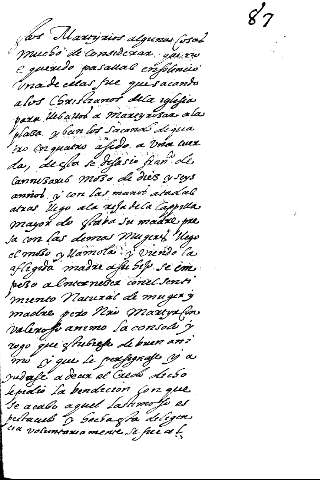 87
los Martyrios algunas cosas
mucho de considerar, que no
e querido pasallas en silencio
Una de ellas fue que sacando
a los Christianos de la iglesia
para lleballos a Martyrisar a la
plassa y ban los sacando de qua
tro en quatro asido a una cuer
da, de esta se desasio fran.co de
Cannisares moso de dies y seys
annos, y con las manos atadas
atras llego a la rexa de la Cappilla
mayor do estaba su madre pre
sa con las demas Mugeres, llego
el moso y llamola y viendo la
afligida madre a su hijo se em
peso a enternecer con el senti
miento Natural de muger y
madre pero Nro Martyr con
valeroso animo la consolo y
rogo que estubiese de buen ani
mo y que le persignase y a
yudase a decir el Credo hecho
le pidio la bendicion con que
se acabo aquel lastimoso es
pectaculo y hecha esta deligen
cia voluntariamente se fue al